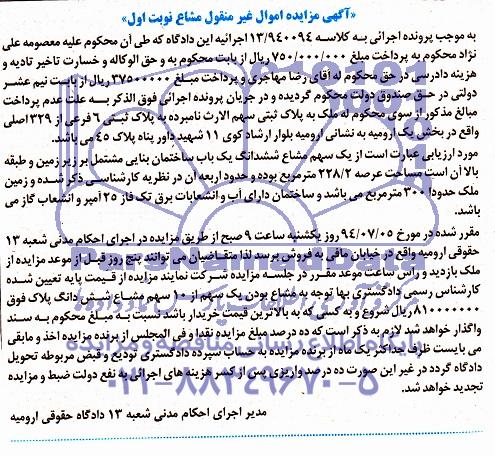 «آگهی مزایده اموال غیر منقول مشاع نوبت اول»
به موجب پرونده اجرائی به کلاسه ۱۳/۹۴۰۰۹۴ اجرائیه این دادگاه که طی آن محکوم علیه معصومه علی
نژاد محکوم به پرداخت مبلغ ۷۵۰/۰۰۰/۰۰۰ ریال از بابت محکوم به و حق الوکاله و خسارت تاخیر تادیه و
هزینه دادرسی در حق محکوم له آقای رضا مهاجری و پرداخت مبلغ ۳۷۵۰۰۰۰۰ ریال از بابت نیم عشر
دولتی در حق صندوق دولت محکوم گردیده و در جریان پرونده اجرائی فوق الذکر به علت عدم پرداخت
مبالغ مذکور از سوی محکوم له ملک به پلاک ثبتی سهم الارث نامبرده به پلاک ثبتی ۶ فرعی از ۳۲۹ اصلی
واقع در بخش یک ارومیه به نشانی ارومیه بلوار ارشاد کوی ۱۱ شهید داور پناه پلاک ۴۵ می باشد.
مورد ارزیابی عبارت است از یک سهم مشاع ششدانگ یک باب ساختمان بنایی مشتمل بر زیر زمین و طبقه
بالا آن است مساحت عرصه ۲۲۸/۲ مترمربع بوده و حدود اربعه آن در نظریه کارشناسی ذکر شده و زمین
ملک حدودا ۳۰۰ مترمربع می باشد و ساختمان دارای آب و انشعابات برق تک فاز ۲۵ آمپر و انشعاب گاز می
باشد.
مقرر شده در مورخ ۹۴/۰۷/۰۵ روز یکشنبه ساعت ۹ صبح از طریق مزایده در اجرای احکام مدنی شعبه ۱۳
حقوقی ارومیه واقع در خیابان مافی به فروش برسد لذا متقاضیان می توانند پنج روز قبل از موعد مزایده از
ملک بازدید و راس ساعت موعد مقرر در جلسه مزایده شرکت نمایند مزایده از قیمت پایه تعیین شده
کارشناس رسمی دادگستری بها توجه به مشاع بودن یک سهم از ۱۰ سهم مشاع شش دانگ پلاک فوق
۸۱۰۰۰۰۰۰۰ ریال شروع و به کسی که به بالاترین قیمت خریدار باشد نسبت به مبلغ محکوم به سند
واگذار خواهد شد لازم به ذکر است که ده درصد مبلغ مزایده نقدا و فی المجلس از برنده مزایده اخذ و مابقی
می بایست ظرف حداکثر یک ماه از برنده مزایده به حساب سپرده دادگستری تودیع و قبض مربوطه تحویل
دادگاه گردد در غیر این صورت ده درصد واریزی پس از کسر هزینه های اجرائی به نفع دولت ضبط و مزایده
تجدید خواهد شد.
مدیر اجرای احکام مدنی شعبه ۱۳ دادگاه حقوقی ارومیه
پایگاه اطلاع رسانی مناقصه و مزایده
۰۲۱-۸۸۳۴۹۶۷۰-۵